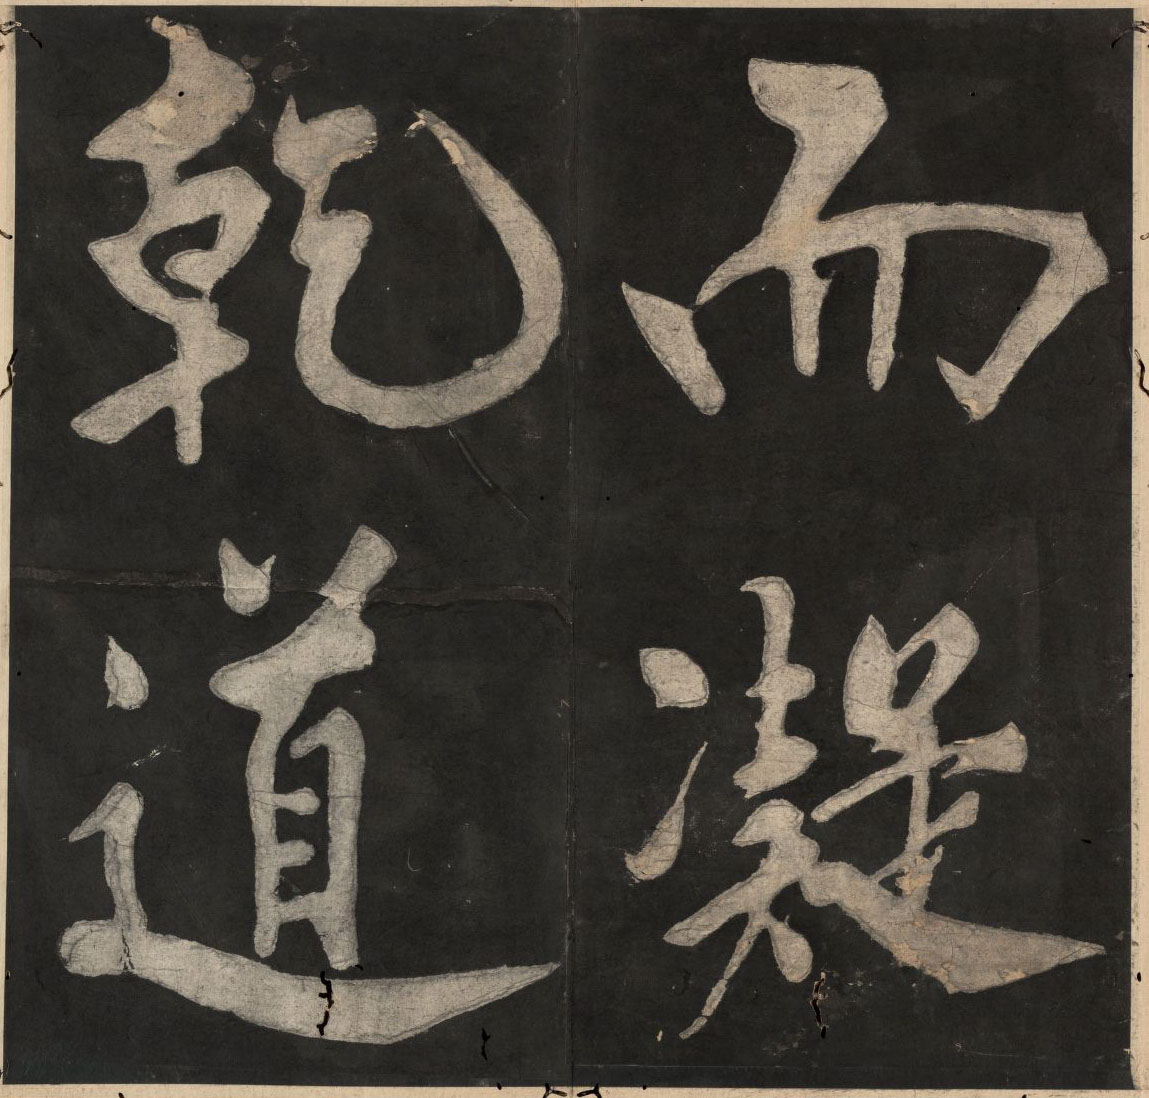 而凝
乾道